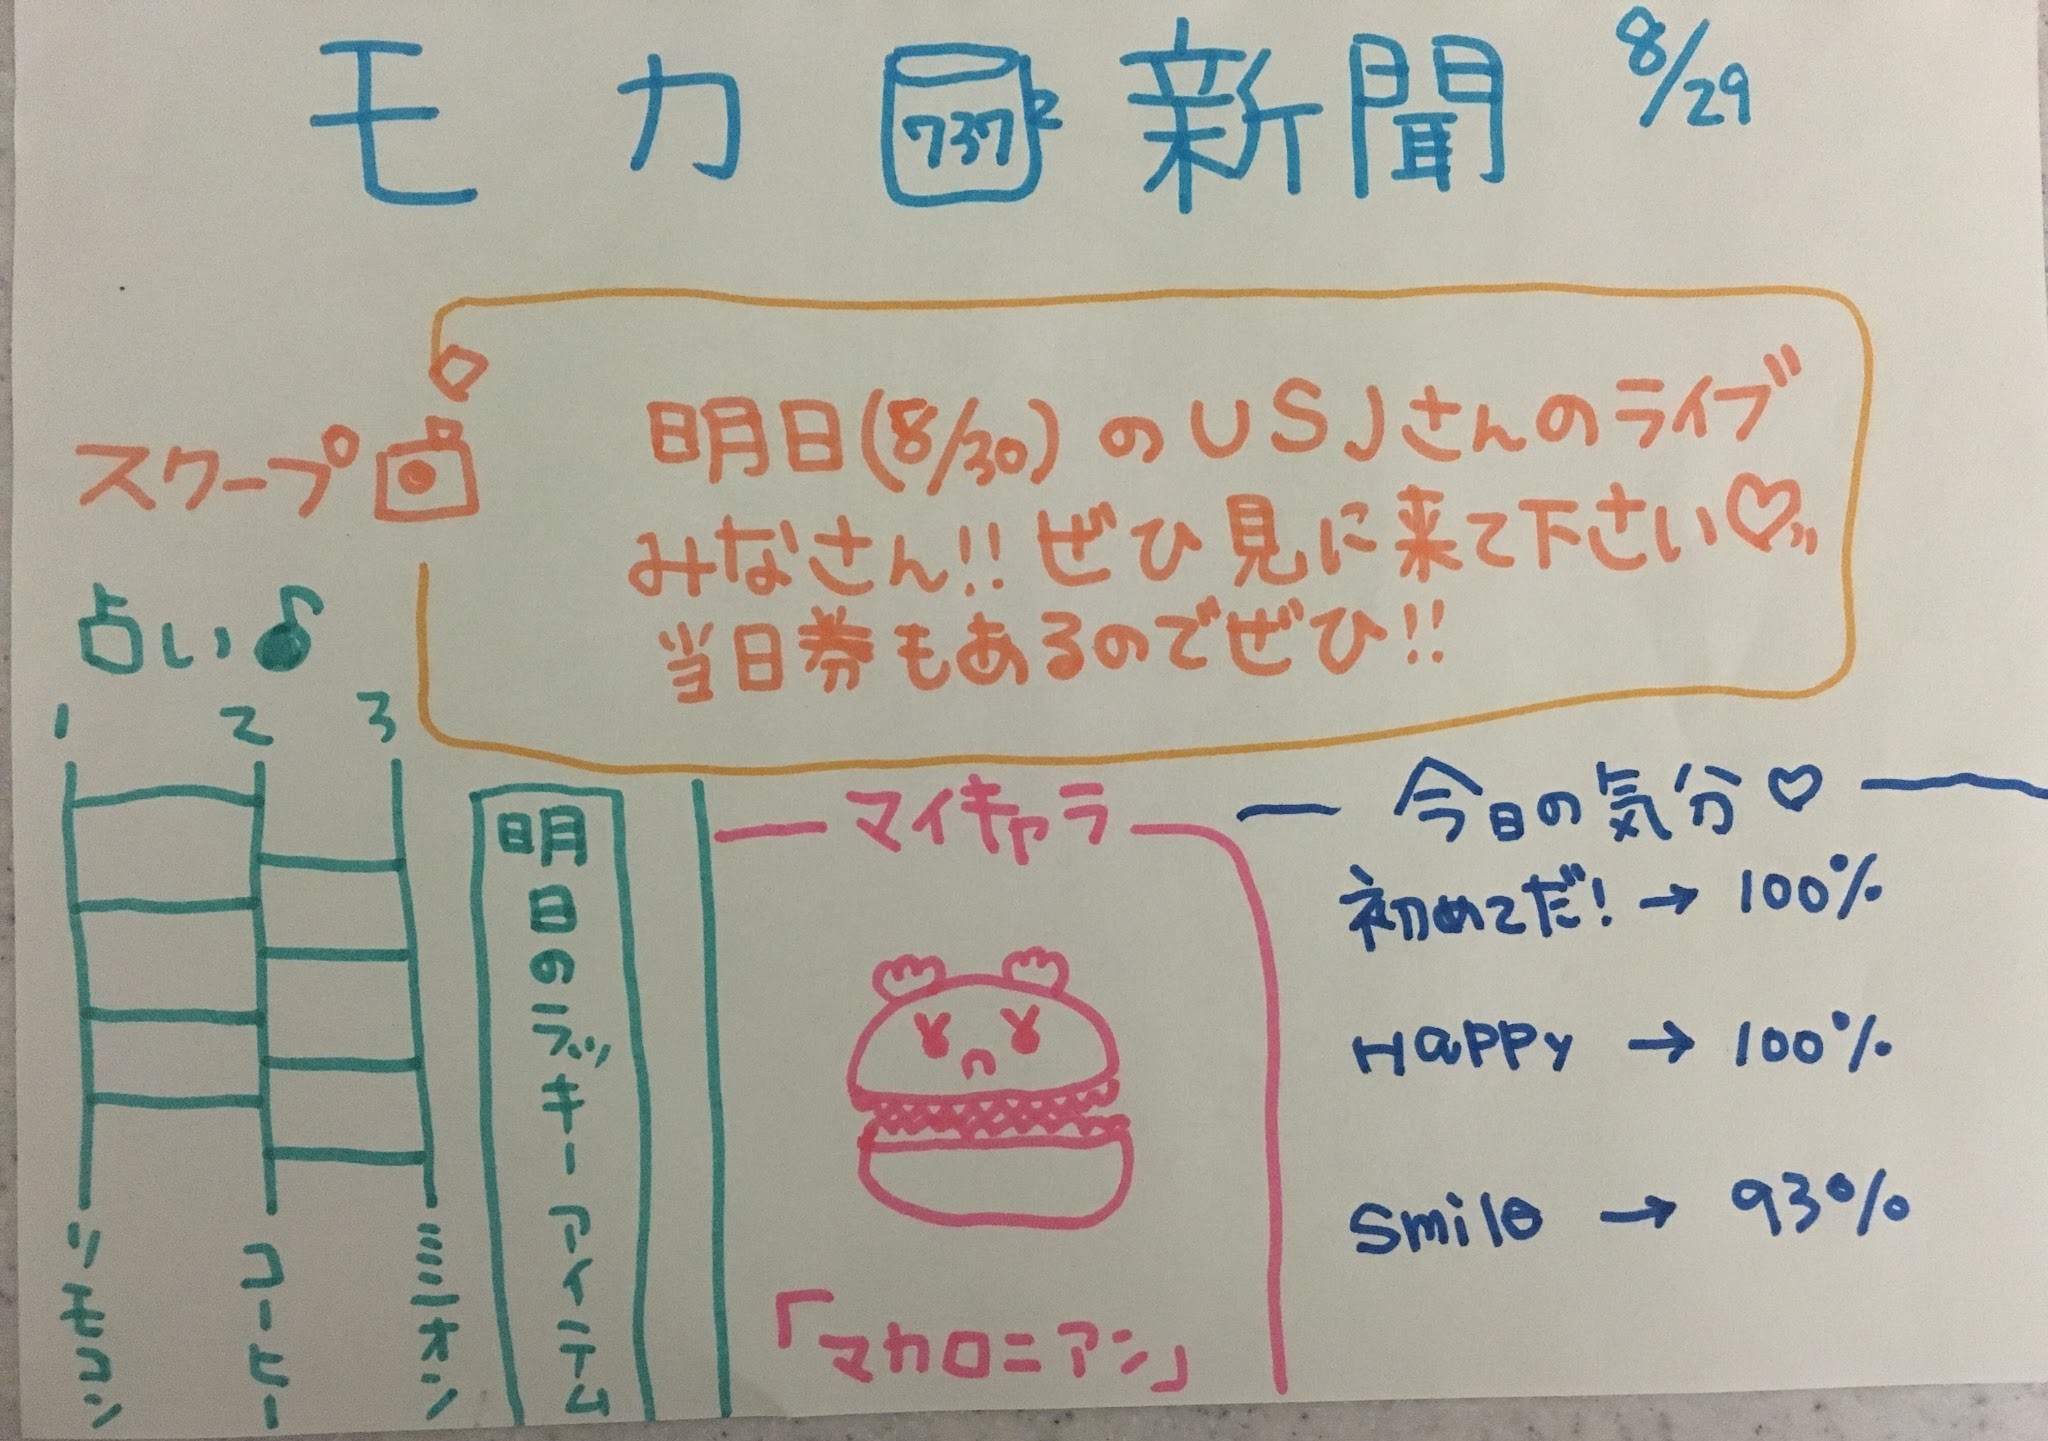 モカ 737 新聞 8/29
スクープ
明日(8/30)のUSJさんのライブ
みなさん!!ぜひ見に来て下さい♡
当日券もあるのでぜひ!!
占い♪
1 2 3
リモコン
コーヒー
ミニオン
明日のラッキーアイテム
マイキャラ
「マカロニアン」
今日の気分♡
初めてだ!→100%
Happy→100%
Smile→93%